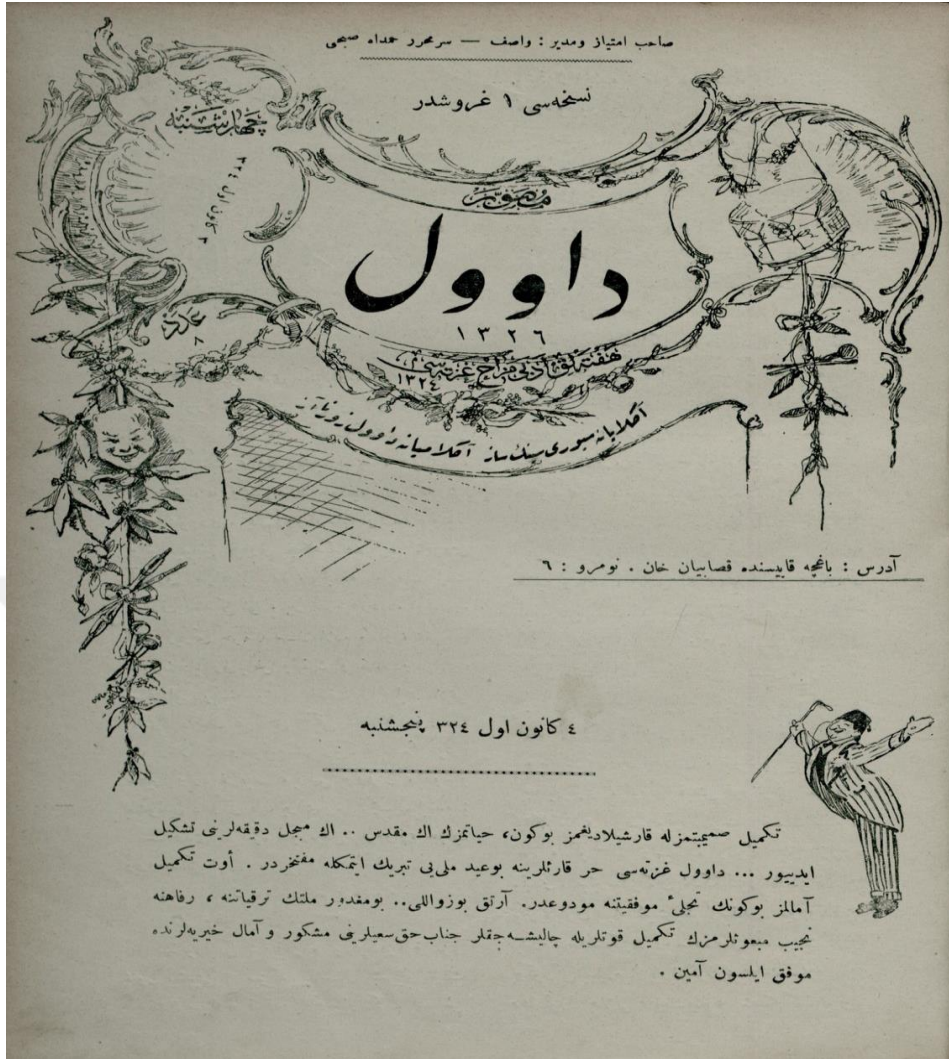 صاحب امتیاز ومدیر : واصف — سرمحرر حمداه صبحی
نسخه‌سی ١ غروشدر
چهارشنبه
٣ كانون اول ٣٢٤
مصور
داوول
١٣٢٦
هفته‌لق ادبی مزاح غزته‌سی
١٣٢٤
عدد
٨
آكلایانه سیوری سینك ساز آكلامیانه داوول زورنا آز
آدرس : باغچه قاپیسنده قصابیان خان . نومرو : ٦
٤ كانون اول ٣٢٤ پنجشنبه
تكمیل صمیمیتمزله قارشیلادیغمز بوكون، حیاتمزك اك مقدس .. اك مبجل دقیقه‌لرینی تشكیل
ایدییور ... داوول غزته‌سی حر قارئلرینه بوعید ملی‌یی تبریك ایتمكله مفتخردر . أوت تكمیل
آمالمز بوكونك تجلیٔ موفقیتنه مودوعدر. آرتق بوزواللی.. بومغدور ملتك ترقیاتنه ، رفاهنه
نجیب مبعوثلرمزك تكمیل قوتلریله چالیشه‌جقلر جناب حق سعیلرینی مشكور و آمال خیریه‌لرنده
موفق ایلسون آمین .